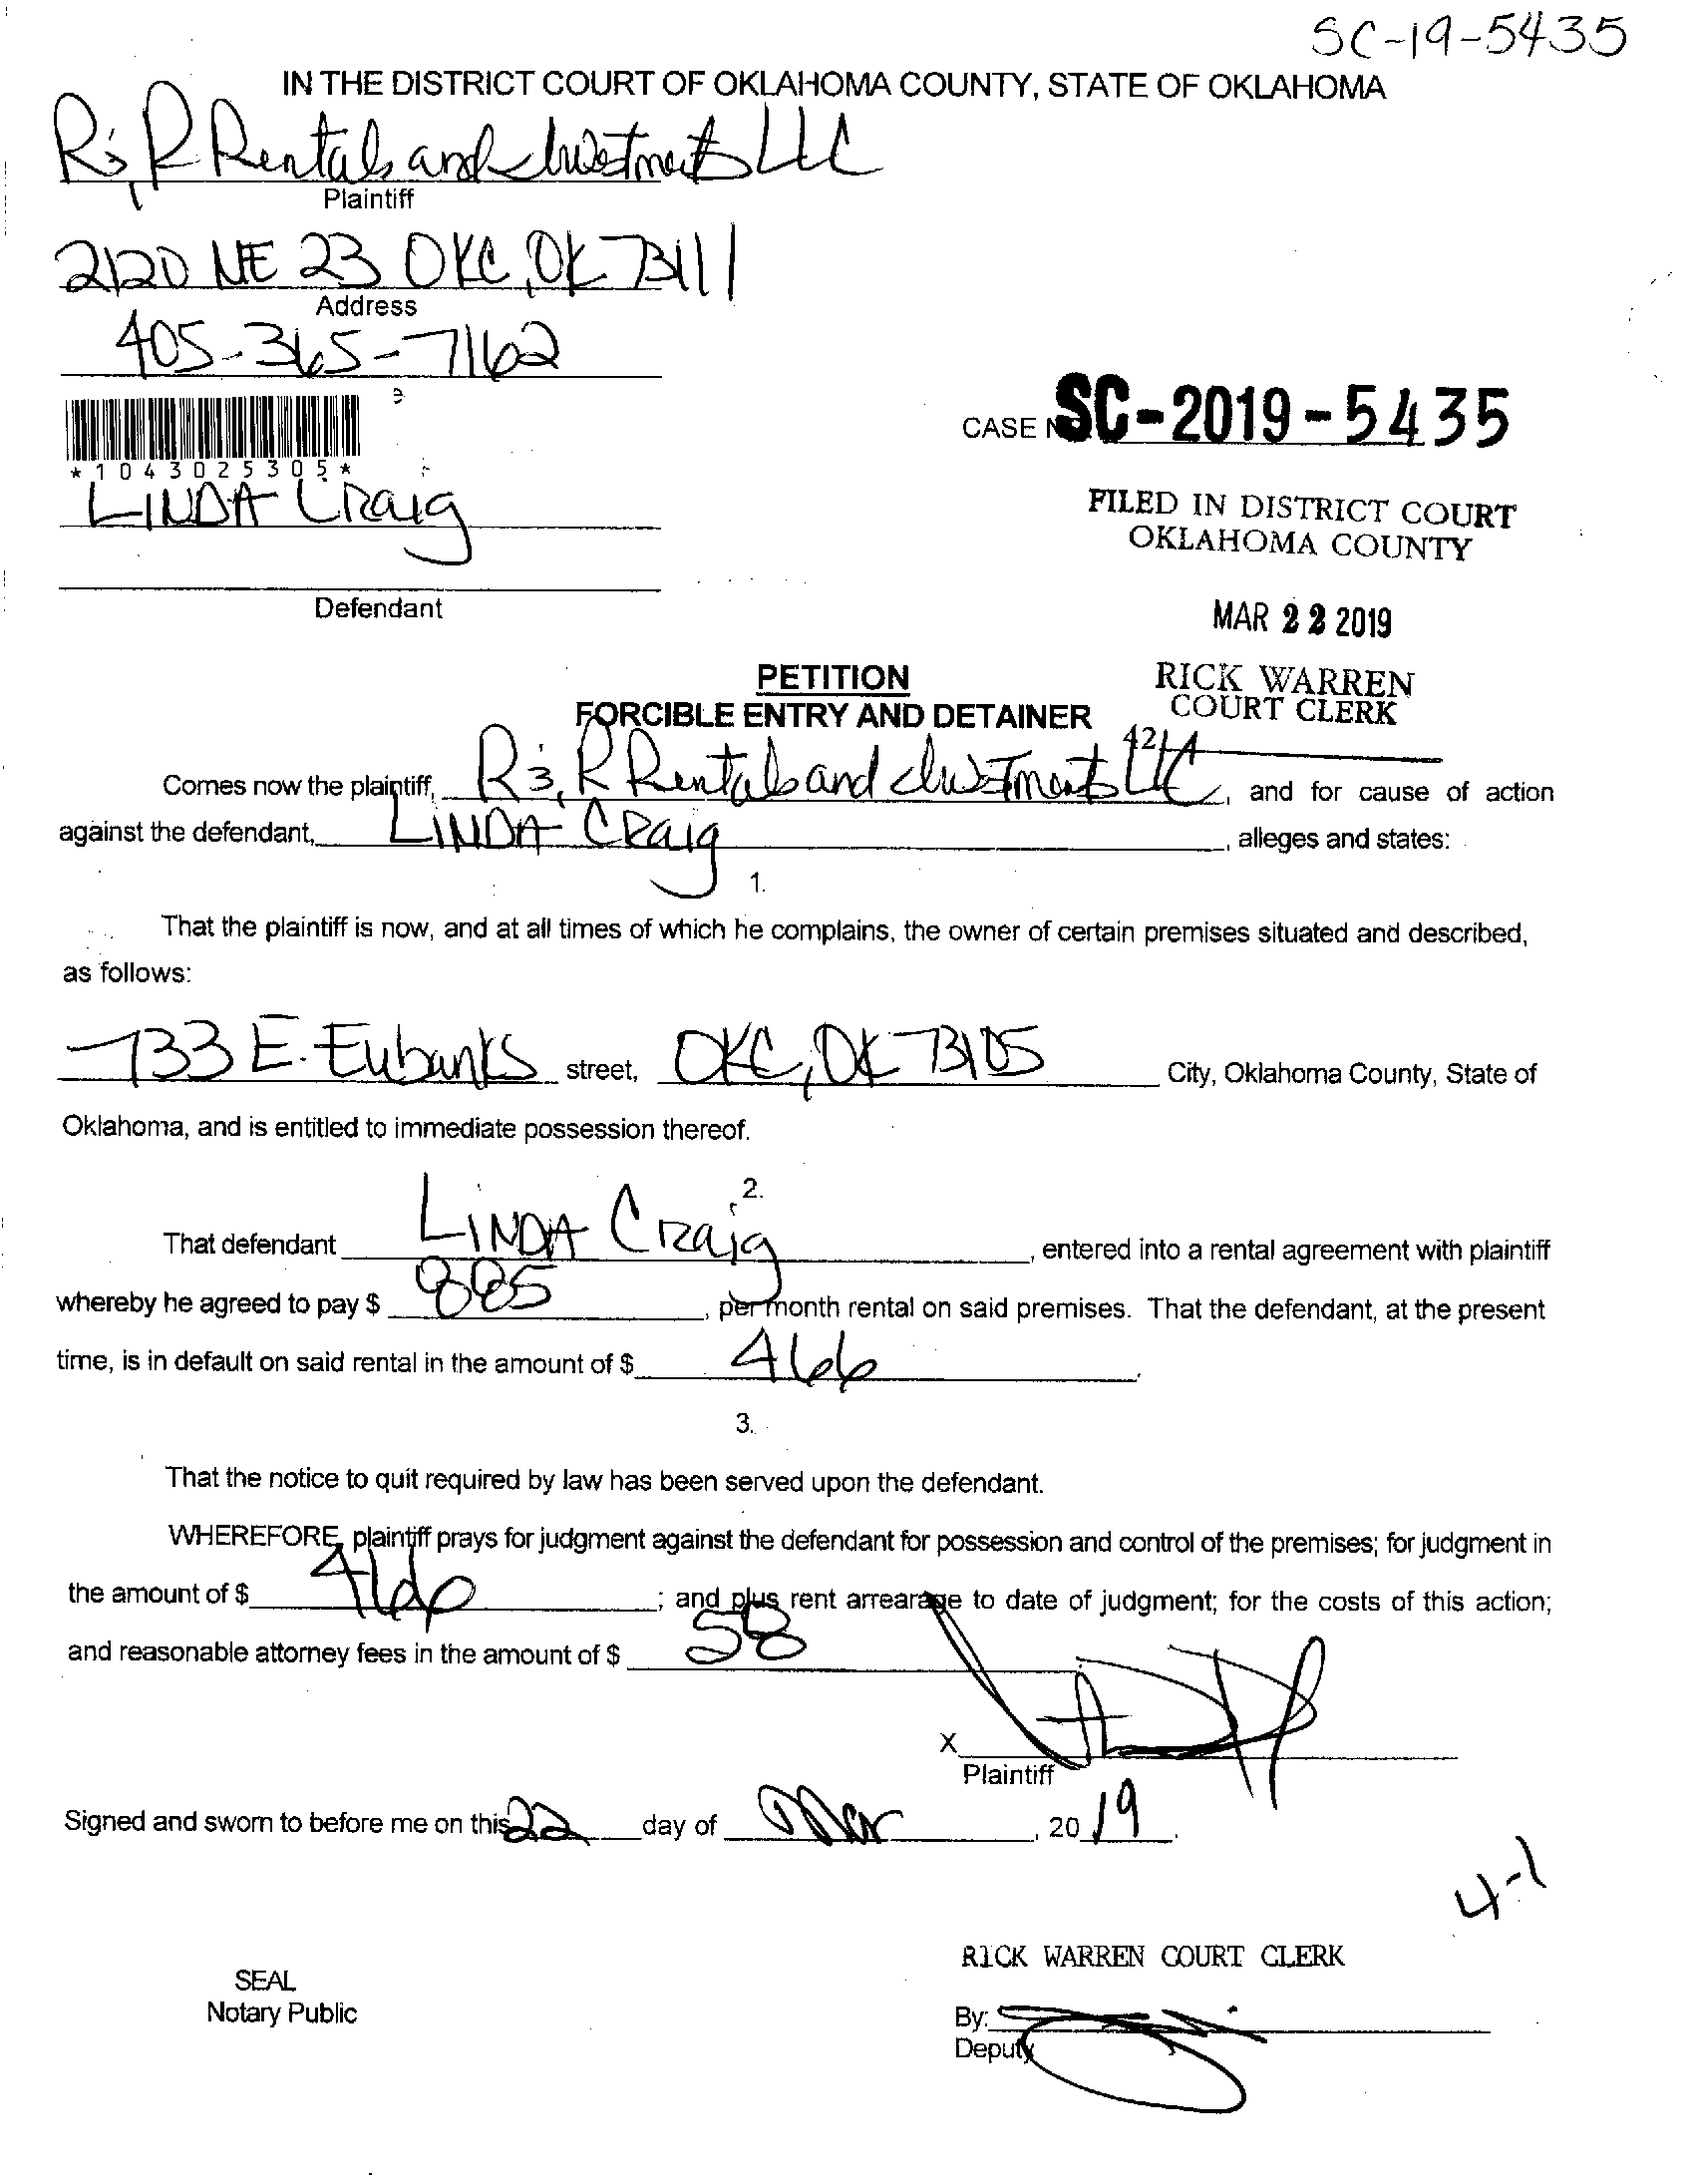 SC-19-5435
IN THE DISTRICT COURT OF OKLAHOMA COUNTY, STATE OF OKLAHOMA
R & R Rentals and Investments LLC
Plaintiff
2120 NE 23 OKC, OK 73111
Address
405-365-7162
CASE N SC-2019-5435
*1043025305*
LINDA CRaig
Defendant
FILED IN DISTRICT COURT
OKLAHOMA COUNTY
MAR 22 2019
RICK WARREN
COURT CLERK
42
PETITION
FORCIBLE ENTRY AND DETAINER
Comes now the plaintiff, R & R Rentals and Investments LLC, and for cause of action
against the defendant, LINDA CRaig, alleges and states:
1.
That the plaintiff is now, and at all times of which he complains, the owner of certain premises situated and described,
as follows:
733 E. Eubanks street, OKC, OK 73105 City, Oklahoma County, State of
Oklahoma, and is entitled to immediate possession thereof.
2.
That defendant LINDA CRaig, entered into a rental agreement with plaintiff
whereby he agreed to pay $ 885, per month rental on said premises. That the defendant, at the present
time, is in default on said rental in the amount of $ 466.
3.
That the notice to quit required by law has been served upon the defendant.
WHEREFORE, plaintiff prays for judgment against the defendant for possession and control of the premises; for judgment in
the amount of $ 466; and plus rent arrearage to date of judgment; for the costs of this action;
and reasonable attorney fees in the amount of $ 58
X
Plaintiff
Signed and sworn to before me on this 22 day of Mar, 20 19.
4-1
RICK WARREN COURT CLERK
SEAL
Notary Public
By:
Deputy